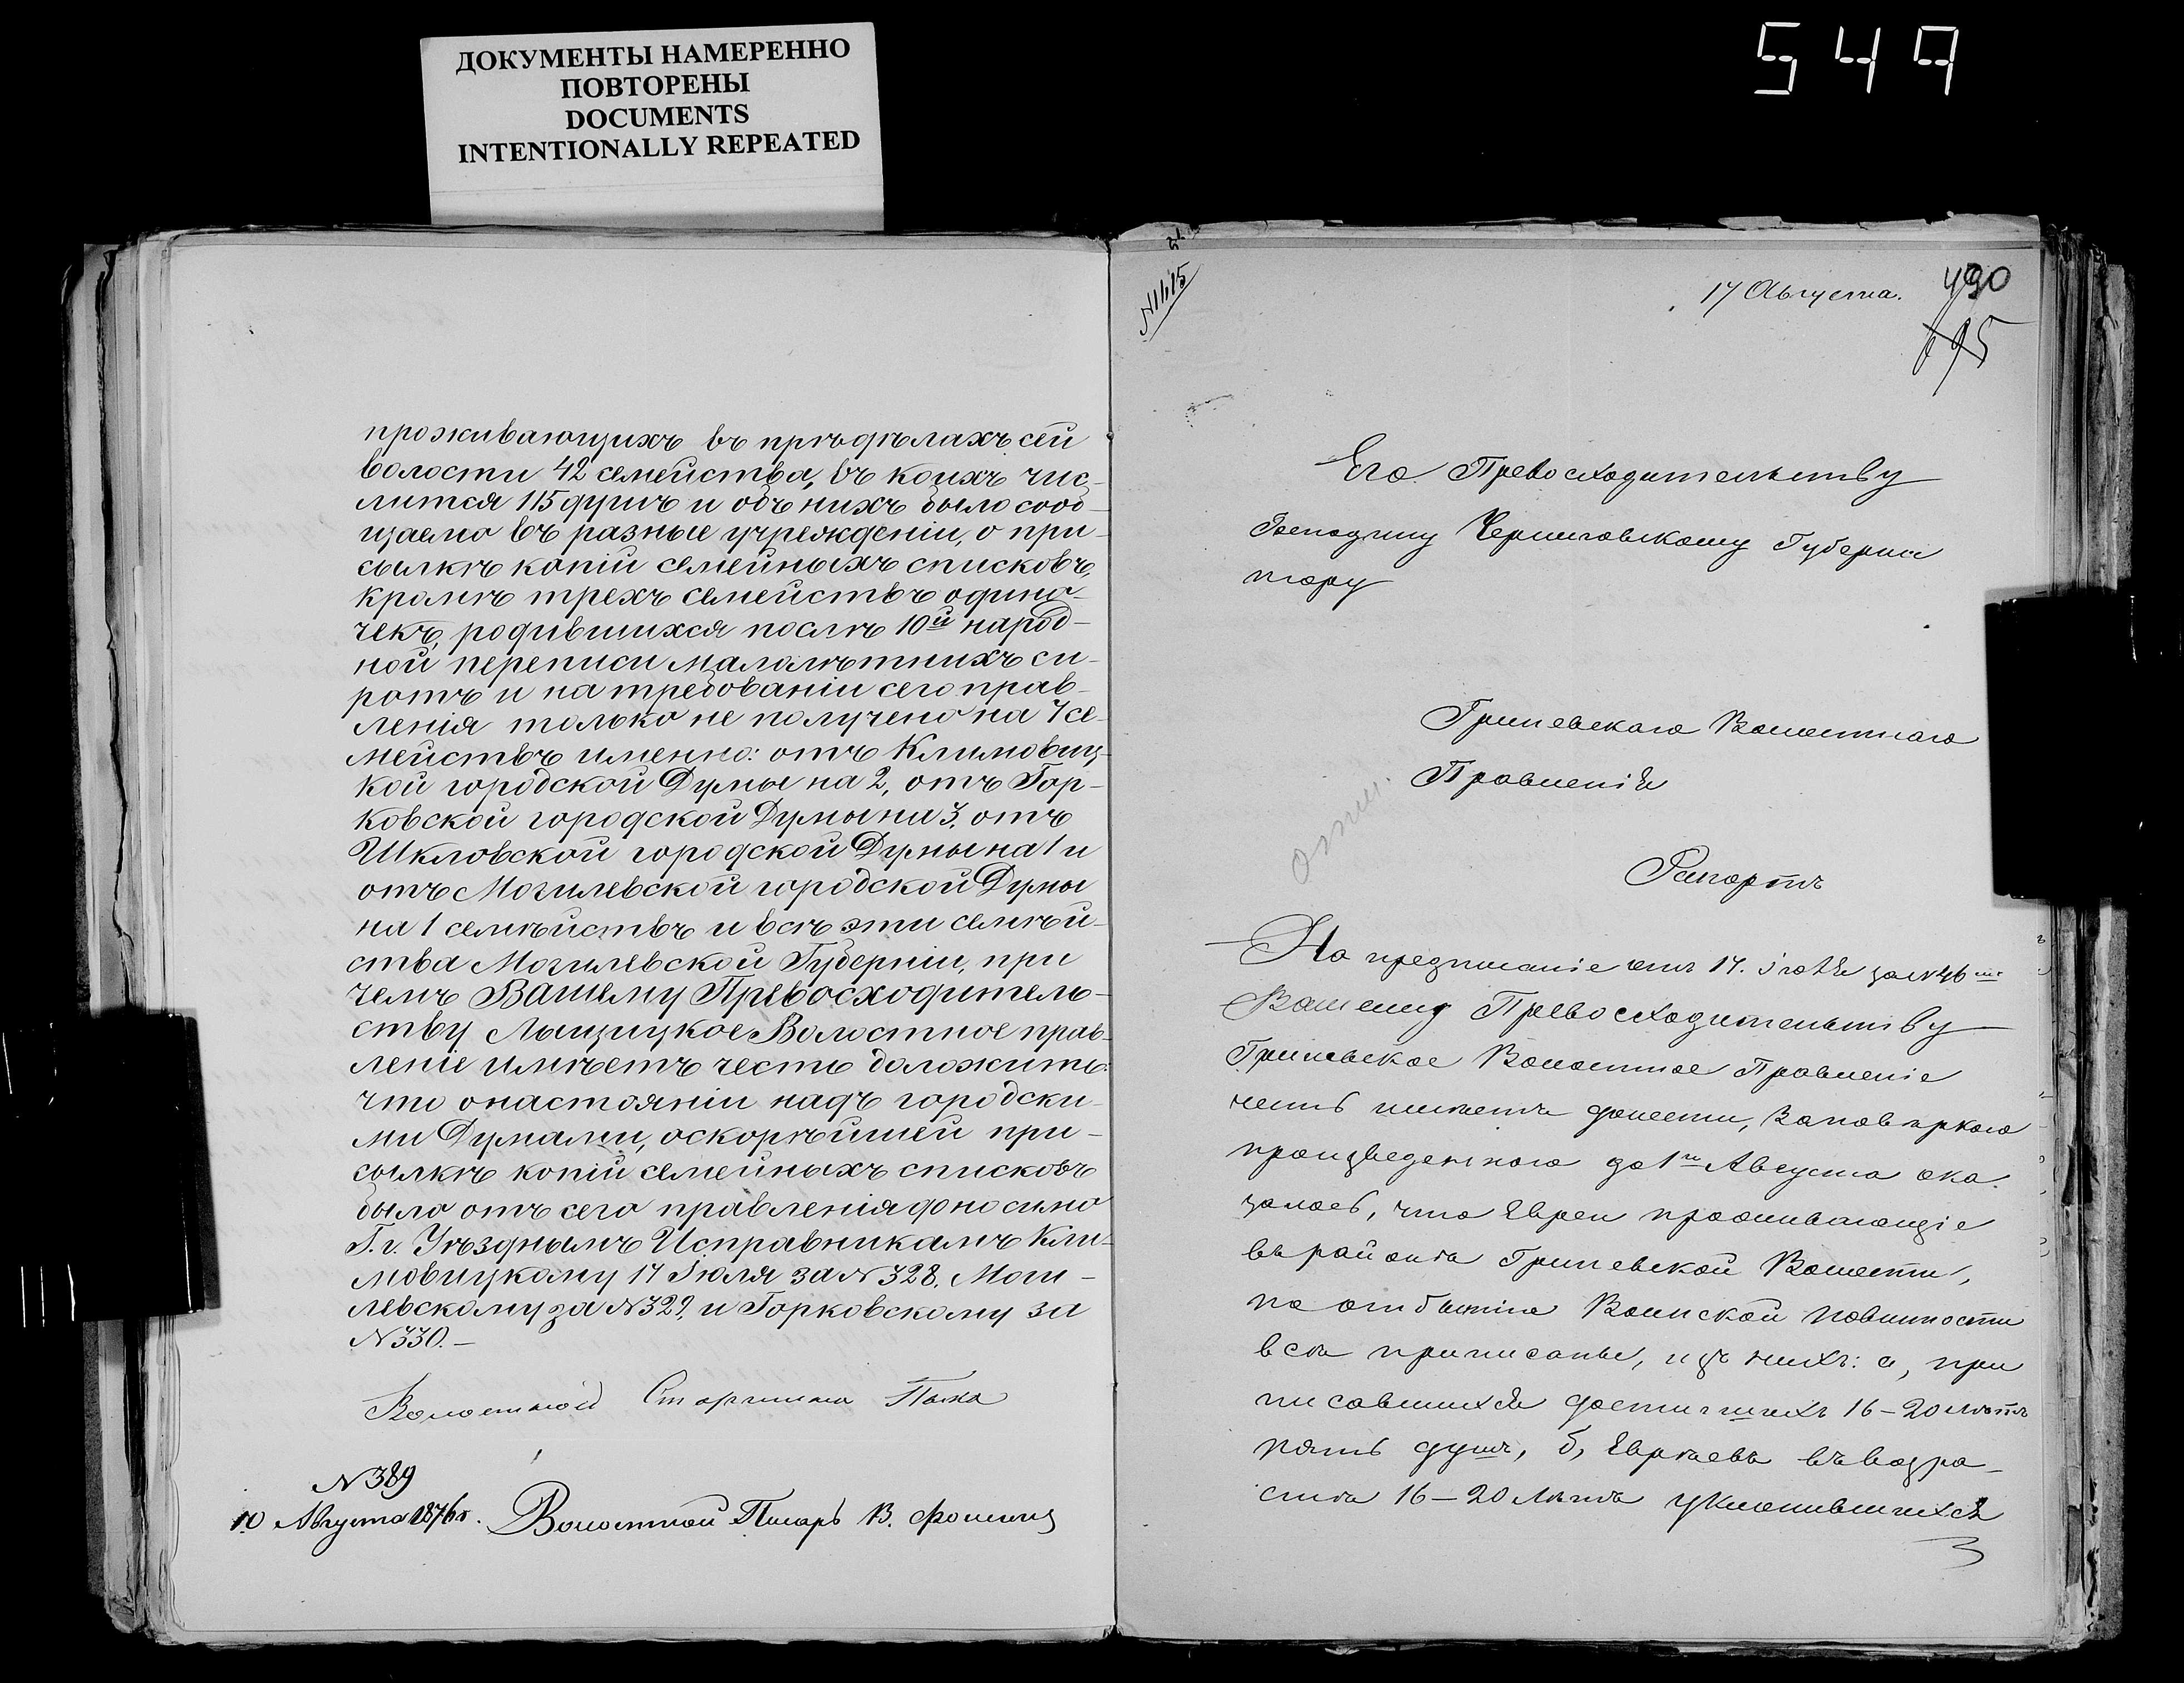 ДОКУМЕНТЫ НАМЕРЕННО
ПОВТОРЕНЫ
DOCUMENTS
INTENTIONALLY REPEATED
549
проживающихъ въ предѣлахъ сей
волости 42 семейства, въ коихъ чис-
лится 115 душъ и объ нихъ было сооб-
щаемо въ разные учрежденіи, о при-
сылкѣ копій семейныхъ списковъ,
кромѣ трехъ семействъ одино-
чекъ, родившихся послѣ 10й народ-
ной переписи малолѣтнихъ си-
ротъ и на требованіи сего прав-
ленія только не получено на 7 се-
мействъ именно: отъ Климовиц-
кой городской Думы на 2, отъ Гор-
ковской городской Думы на 3, отъ
Шкловской городской Думы на 1 и
отъ Могилевской городской Думы
на 1 семѣйствъ и всѣ эти семѣй-
ства Могилевской Губерніи, при
чемъ Вашему Превосходитель-
ству Лыщицкое Волостное прав-
леніе имѣетъ честь доложить:
что о настояніи надъ городски-
ми Думами, о скорѣйшей при-
сылкѣ копій семейныхъ списковъ
было отъ сего правленія доносимо
Г.г. Уѣзднымъ Исправникамъ Кли-
мовицкому 17 Іюля за № 328, Моги-
левскому за № 329, и Горковскому за
№ 330.—
Волостной Старшина
№ 389
10 Августа 1876 г. Волостной Писарь В.
17 Августа. 490
695
№ 1615
Его Превосходительству
Господину Черниговскому Губерна
тору
Гриневскаго Волостнаго
Правленія
Рапортъ
На предписаніе отъ 17. Іюля за №
Вашему Превосходительству
Гриневское Волостное Правленіе
честь имѣетъ донести, Заповѣркою
произведенною до 1го Августа ока
залось, что Евреи проживающіе
въ раіонѣ Гриневской Волости,
по отбытію Воинской повинности
всѣ приписаны, изъ нихъ: а, при
писавшихся достигшихъ 16–20 лѣтъ
пять душъ, б, Евреевъ въ возра-
стѣ 16–20 лѣтъ уклонившихся